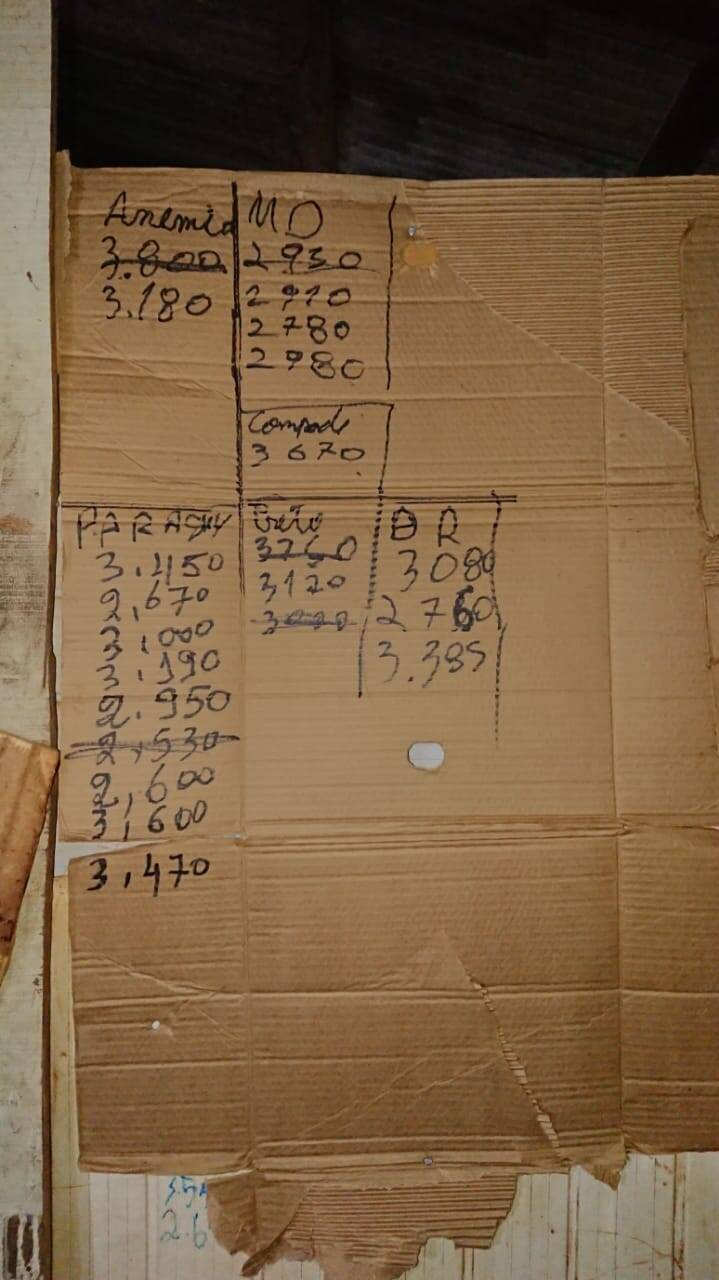 Anemia
3.800
3.180
M D
2930
2910
2780
2980
Compade
3670
3.450
2,670
3,000
3.190
2.950
2,530
2,600
3,600
3,470
Beto
3760
3170
3000
D R
3080
2760
3.385
2.6